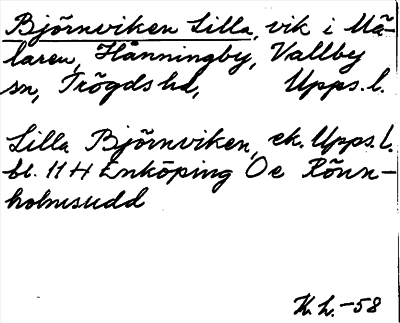 Björnviken Lilla, vik i Mä-
laren, Hånningby, Vallby
sn, Trögds hd, Upps. l.
Lilla Björnviken, ek. Upps. l.
bl. 11 H Enköping Öe Rönn-
holmsudd
K. L. -58